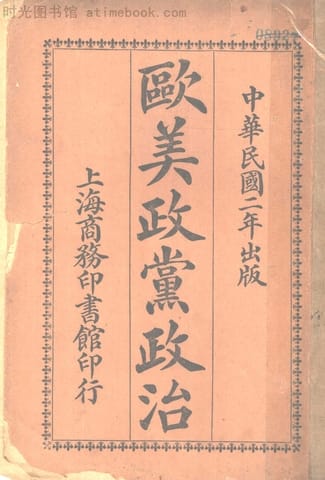 时光图书馆 atimebook.com
中華民國二年出版
歐美政黨政治
上海商務印書館印行